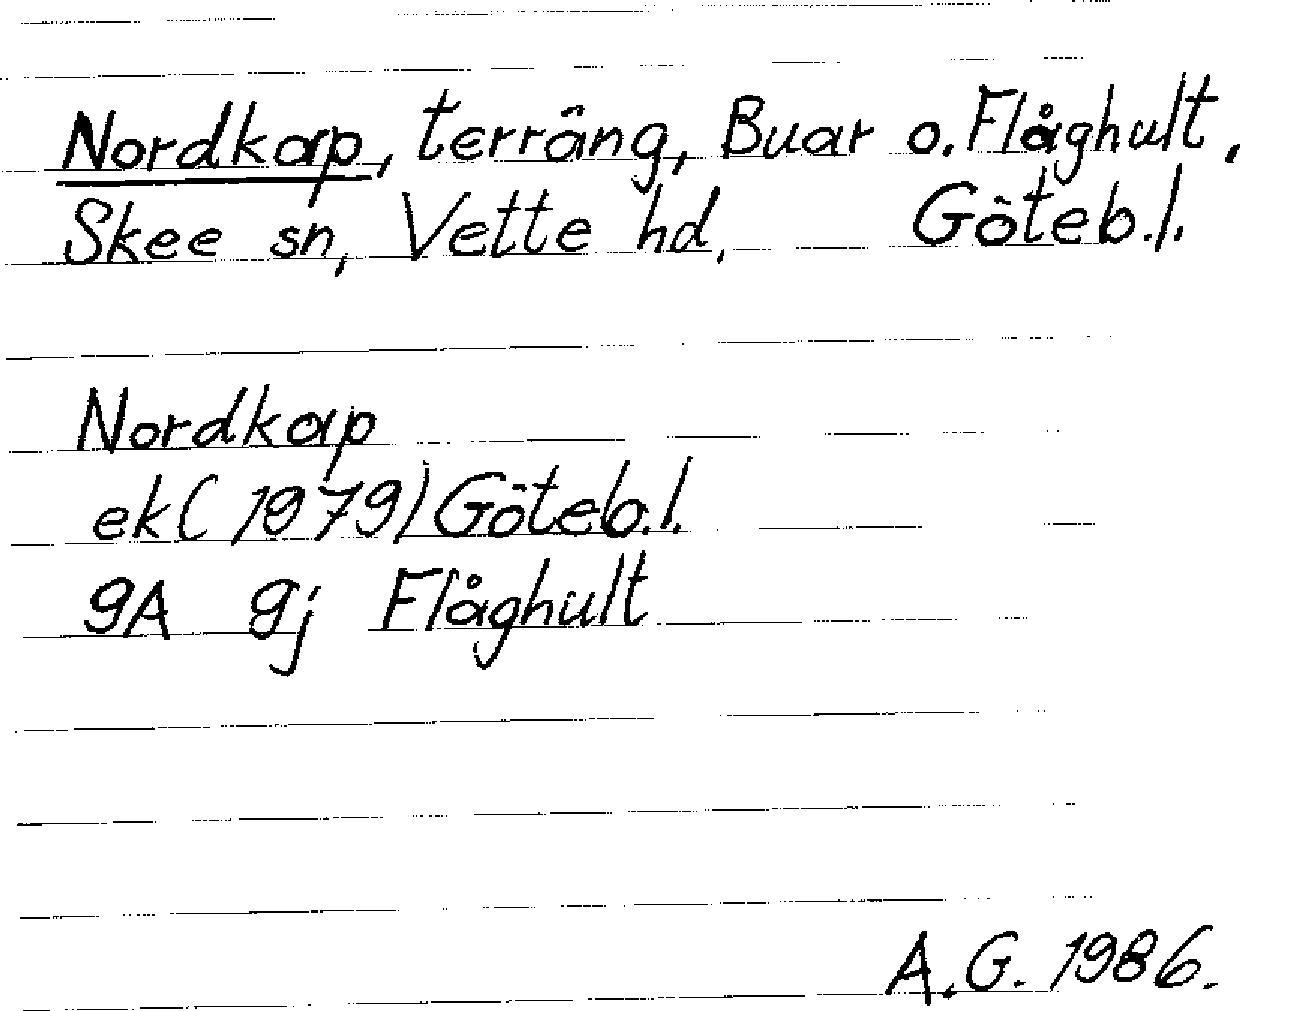 Nordkap, terräng, Buar o. Flåghult,
Skee sn, Vette hd, Göteb.l.
Nordkap
ek (1979) Göteb.l.
9A 9j Flåghult
A.G. 1986.